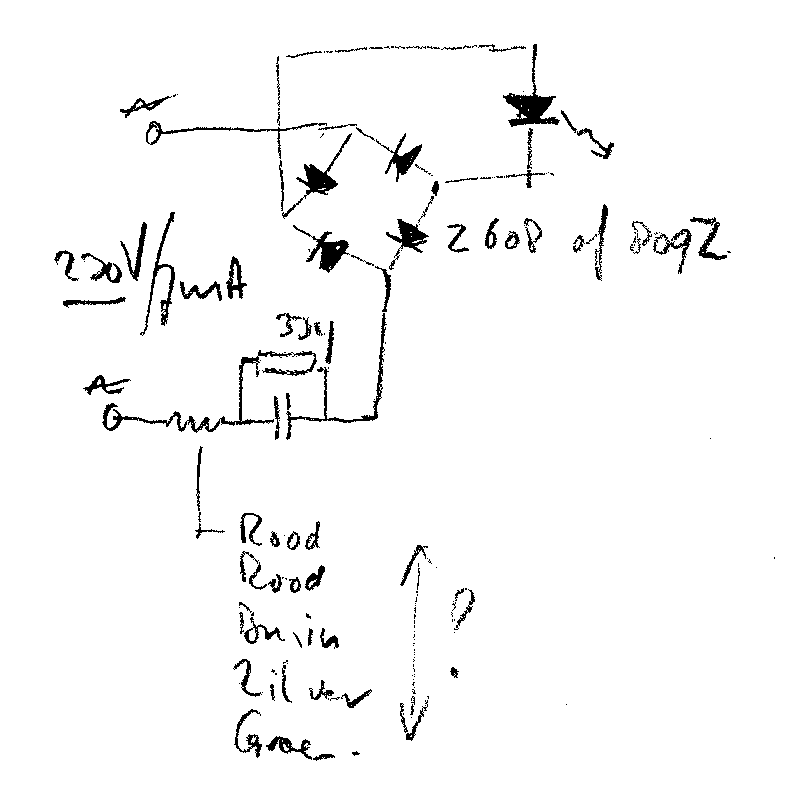 2608 of 809Z
230V/ mA
33k
Rood
Rood
Bruin
Zilver
Groen.
?